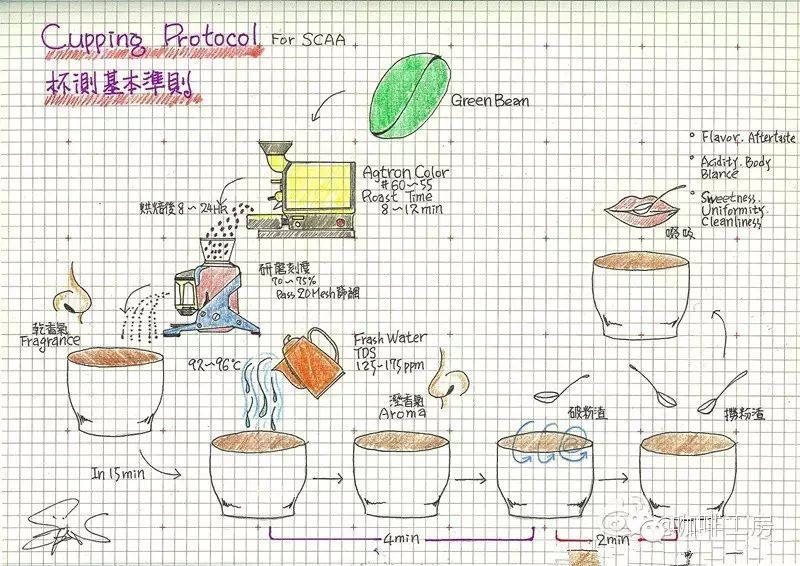 Cupping Protocol For SCAA
杯測基本準則
Green Bean
Agtron Color
#60~55
Roast Time
8~12min
烘焙後8~24HR
。Flavor. Aftertaste
。Acidity. Body
Blance
。Sweetness.
Uniformity.
Cleanliness
啜吸
研磨刻度
70~75%
Pass 20Mesh篩網
乾香氣
Fragrance
92~96°C
Frash Water
TDS
125~175ppm
溼香氣
Aroma
破粉渣
撈粉渣
In 15min
4min
2min
咖啡工房